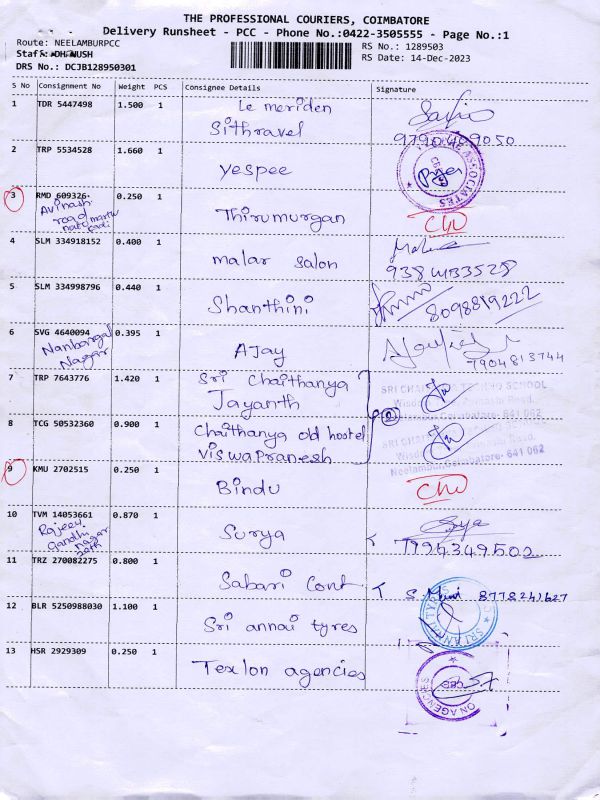 THE PROFESSIONAL COURIERS, COIMBATORE
Delivery Runsheet - PCC - Phone No.:0422-3505555 - Page No.:1
Route: NEELAMBURPCC
RS No.: 1289503
Staff: DHANUSH
RS Date: 14-Dec-2023
DRS No.: DCJB128950301
S No Consignment No Weight PCS Consignee Details Signature
1 TDR 5447498 1.500 1 Le meriden
Sithravel
9790409050
2 TRP 5534528 1.660 1 yespee
ASSOCIATES
3 RMD 609326 0.250 1 Thirumurgan
Avinash
road
4 SLM 334918152 0.400 1 malar salon
5 SLM 334998796 0.440 1 Shanthini 8098819222
6 SVG 4640094 0.395 1 AJay
Nagar
7904813744
7 TRP 7643776 1.420 1 Sri Chaithanya
Jayanth
SCHOOL
Coimbatore- 641 062
8 TCG 50532360 0.900 1 Chaithanya old hostel
Viswapranesh
Neelambur,Coimbatore- 641 062
9 KMU 2702515 0.250 1 Bindu
10 TVM 14053661 0.870 1 Surya
Rajeev
Gandhi
nagar
7994349502
11 TRZ 270082275 0.800 1 Sabari Cont
8778241627
12 BLR 5250988030 1.100 1 Sri annai tyres
SRI ANNAI
13 HSR 2929309 0.250 1 Texlon agencies
ON AGENCIES